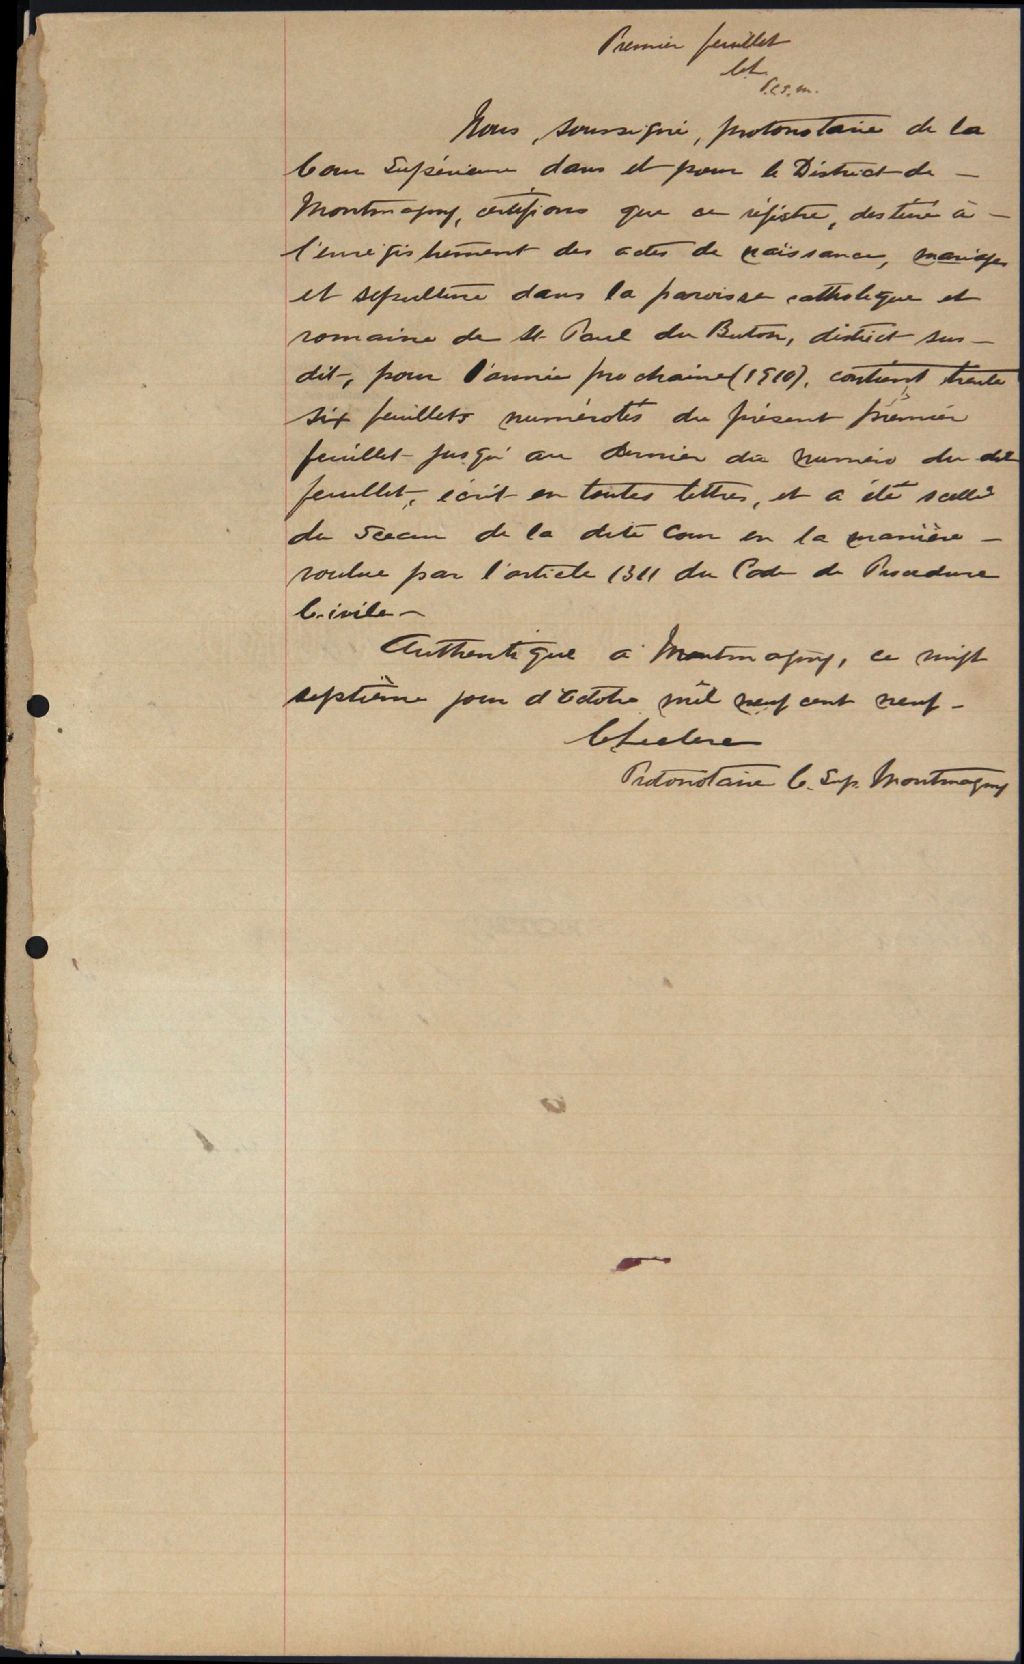 Premier feuillet
P.C.S.M.
Nous, soussigné, protonotaire de la
Cour Supérieure dans et pour le District de —
Montmagny, certifions que ce régistre, destiné à —
l'enregistrement des actes de naissance, mariages
et sépulture dans la paroisse catholique et
romaine de St Paul du Buton, district sus—
dit, pour l'année prochaine (1910), contient trente
six feuillets numérotés du présent premier
feuillet jusqu'au dernier du numéro du dit
feuillet, écrit en toutes lettres, et a été scellé
du Sceau de la dite Cour en la manière —
voulue par l'article 1311 du Code de Procedure
Civile —
Authentiqué à Montmagny, ce vingt
septième jour d'Octobre mil neuf cent neuf —
Leclerc
Protonotaire C. Sup. Montmagny